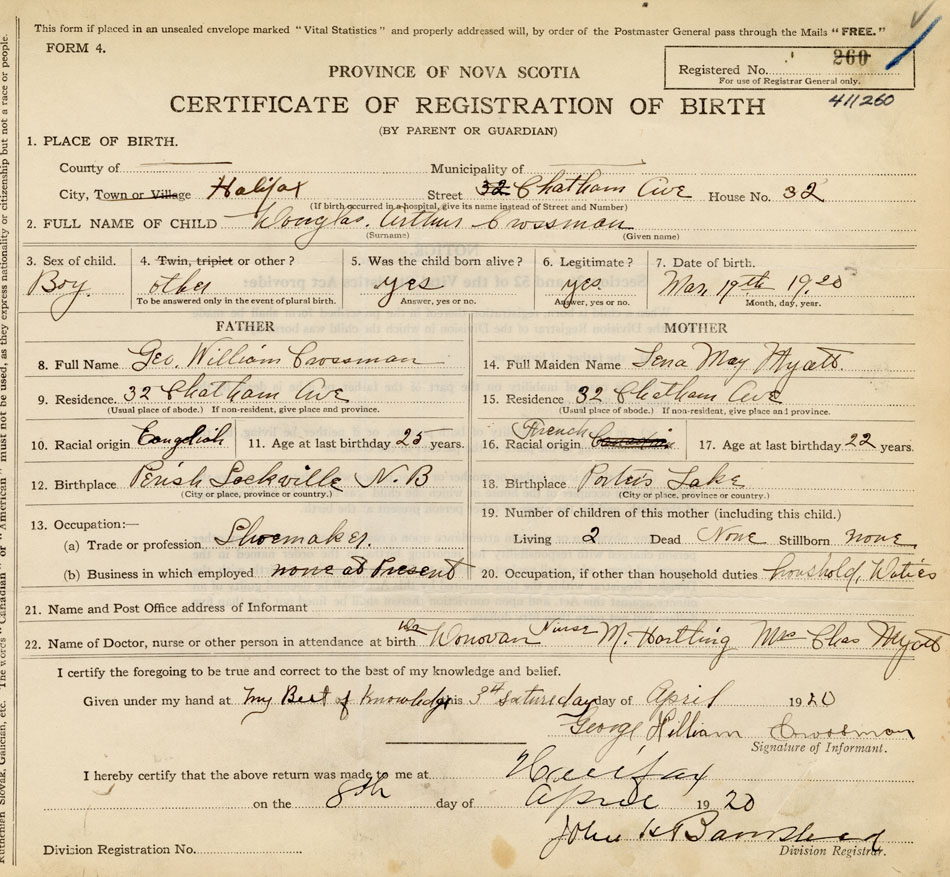 This form if placed in an unsealed envelope marked "Vital Statistics" and properly addressed will, by order of the Postmaster General pass through the Mails "FREE."
FORM 4.
Registered No. 260
For use of Registrar General only.
411260
PROVINCE OF NOVA SCOTIA
CERTIFICATE OF REGISTRATION OF BIRTH
(BY PARENT OR GUARDIAN)
1. PLACE OF BIRTH.
County of Municipality of
City, Town or Village Halifax Street 32 Chatham Ave House No. 32
(If birth occurred in a hospital, give its name instead of Street and Number)
2. FULL NAME OF CHILD Douglas. Arthur Crossman
(Surname) (Given name)
3. Sex of child. 4. Twin, triplet or other? 5. Was the child born alive? 6. Legitimate? 7. Date of birth.
Boy. other yes yes Mar 19th 1920
To be answered only in the event of plural birth. Answer, yes or no. Answer, yes or no. Month, day, year.
FATHER MOTHER
8. Full Name Geo. William Crossman 14. Full Maiden Name Lena May Myatt.
9. Residence. 32 Chatham Ave 15. Residence 32 Chatham Ave
(Usual place of abode.) If non-resident, give place and province. (Usual place of abode.) If non-resident, give place and province.
10. Racial origin English 11. Age at last birthday 25 years. 16. Racial origin French 17. Age at last birthday 22 years.
12. Birthplace Perish Sackville N.B 18. Birthplace Porters Lake
(City or place, province or country.) (City or place, province or country.)
13. Occupation:— 19. Number of children of this mother (including this child.)
(a) Trade or profession Shoemaker. Living 2 Dead None Stillborn none
(b) Business in which employed none at Present 20. Occupation, if other than household duties houshold, Duties
21. Name and Post Office address of Informant
22. Name of Doctor, nurse or other person in attendance at birth Donovan Nurse M. Hartling Mrs Chas Myatt
I certify the foregoing to be true and correct to the best of my knowledge and belief.
Given under my hand at my Best of knowledge this 3rd saturday day of April 1920
George William Crossman
Signature of Informant.
I hereby certify that the above return was made to me at Halifax
on the 8th day of April 1920
John H
Division Registration No. Division Registrar.
Ruthenian Slovak, Galician, etc. The words "Canadian" or "American" must not be used, as they express nationality or citizenship but not a race or people.